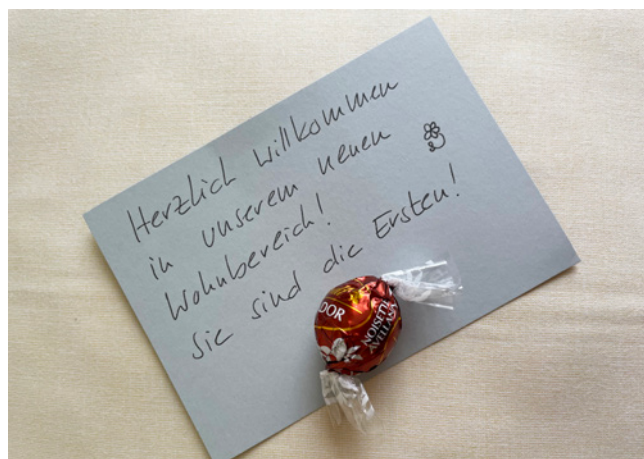 Herzlich Willkommen
in unserem neuen
Wohnbereich!
Sie sind die Ersten!
DOR
FANTASY
ILLUSION